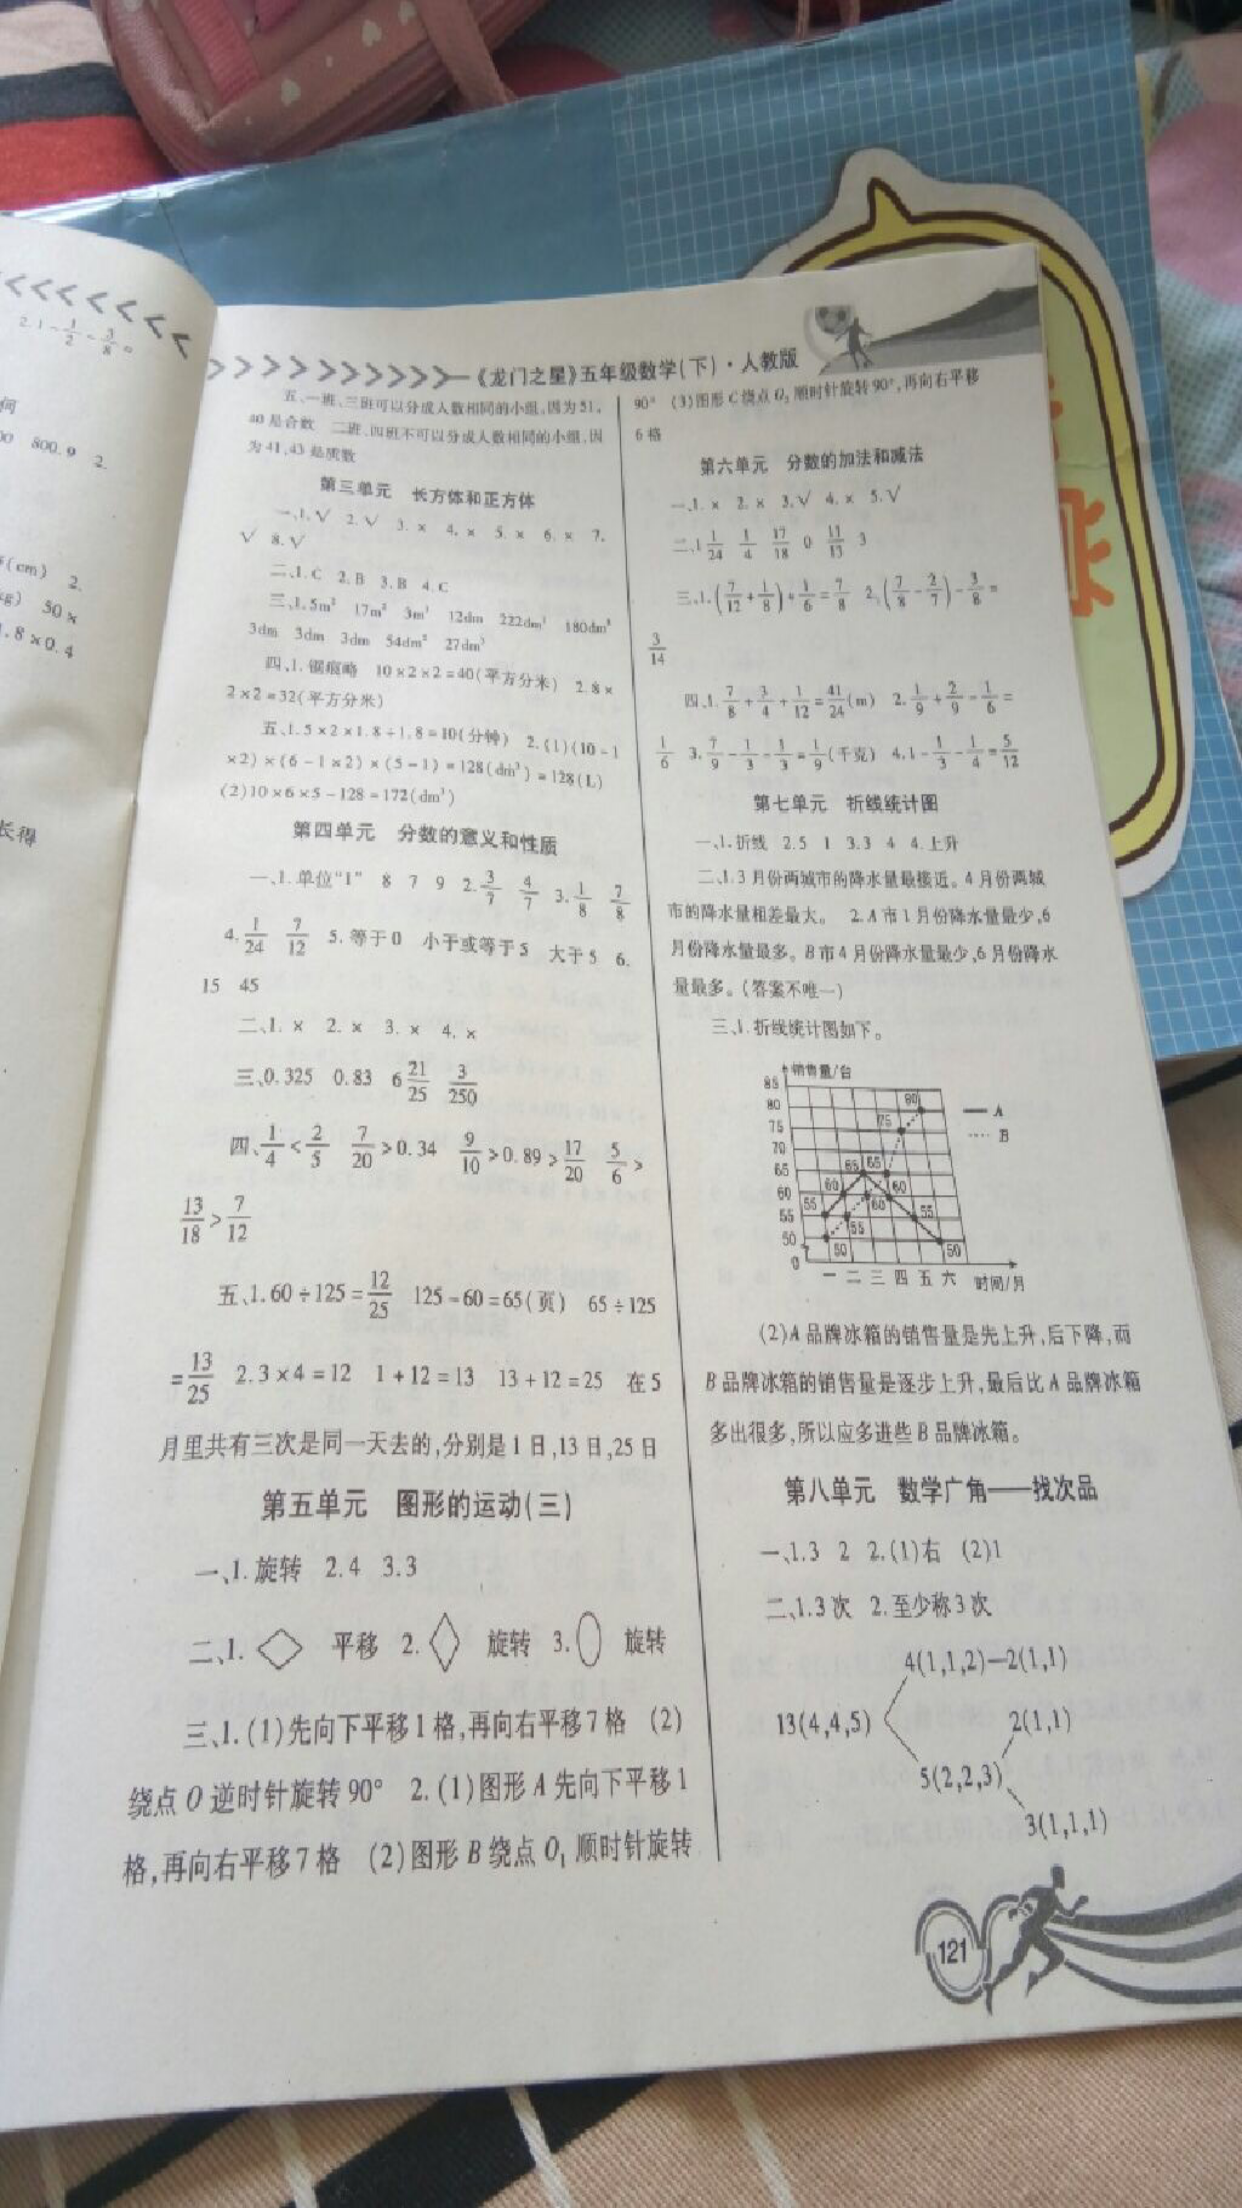 2.1-1/2-3/8=
何
800.9 2.
(cm) 2.
50×
1.8×0.4
长得
《龙门之星》五年级数学(下)·人教版
五、一班、三班可以分成人数相同的小组,因为51,
40是合数 二班、四班不可以分成人数相同的小组,因
为41,43是质数
第三单元 长方体和正方体
一、1.√ 2.√ 3.× 4.× 5.× 6.× 7.
√ 8.√
二、1.C 2.B 3.B 4.C
三、1.5m² 17m² 3m³ 12dm 222dm² 180dm³
3dm 3dm 3dm 54dm² 27dm³
四、1.锯痕略 10×2×2=40(平方分米) 2.8×
2×2=32(平方分米)
五、1.5×2×1.8÷1.8=10(分钟) 2.(1)(10-1
×2)×(6-1×2)×(5-1)=128(dm³)=128(L)
(2)10×6×5-128=172(dm³)
第四单元 分数的意义和性质
一、1.单位"1" 8 7 9 2.3/7 4/7 3.1/8 7/8
4.1/24 7/12 5.等于0 小于或等于5 大于5 6.
15 45
二、1.× 2.× 3.× 4.×
三、0.325 0.83 6 21/25 3/250
四、1/4<2/5 7/20>0.34 9/10>0.89>17/20 5/6>
13/18>7/12
五、1.60÷125=12/25 125-60=65(页) 65÷125
=13/25 2.3×4=12 1+12=13 13+12=25 在5
月里共有三次是同一天去的,分别是1日,13日,25日
第五单元 图形的运动(三)
一、1.旋转 2.4 3.3
二、1. 平移 2. 旋转 3. 旋转
三、1.(1)先向下平移1格,再向右平移7格 (2)
绕点O逆时针旋转90° 2.(1)图形A先向下平移1
格,再向右平移7格 (2)图形B绕点O₁顺时针旋转
90° (3)图形C绕点O₂顺时针旋转90°,再向右平移
6格
第六单元 分数的加法和减法
一、1.× 2.× 3.√ 4.× 5.√
二、1 1/24 1/4 17/18 0 11/13 3
三、1.(7/12+1/8)+1/6=7/8 2.(7/8-2/7)-3/8=
3/14
四、1.7/8+3/4+1/12=41/24(m) 2.1/9+2/9-1/6=
1/6 3.7/9-1/3-1/3=1/9(千克) 4.1-1/3-1/4=5/12
第七单元 折线统计图
一、1.折线 2.5 1 3.3 4 4.上升
二、1.3月份两城市的降水量最接近。4月份两城
市的降水量相差最大。 2.A市1月份降水量最少,6
月份降水量最多。B市4月份降水量最少,6月份降水
量最多。(答案不唯一)
三、1.折线统计图如下。
销售量/台
85
80 80
A
75 75
B
70
65 65 65
60 60 60 60
55 55 55 55
50 50 50
0
一 二 三 四 五 六 时间/月
(2)A品牌冰箱的销售量是先上升,后下降,而
B品牌冰箱的销售量是逐步上升,最后比A品牌冰箱
多出很多,所以应多进些B品牌冰箱。
第八单元 数学广角——找次品
一、1.3 2 2.(1)右 (2)1
二、1.3次 2.至少称3次
4(1,1,2)—2(1,1)
13(4,4,5) 2(1,1)
5(2,2,3)
3(1,1,1)
121